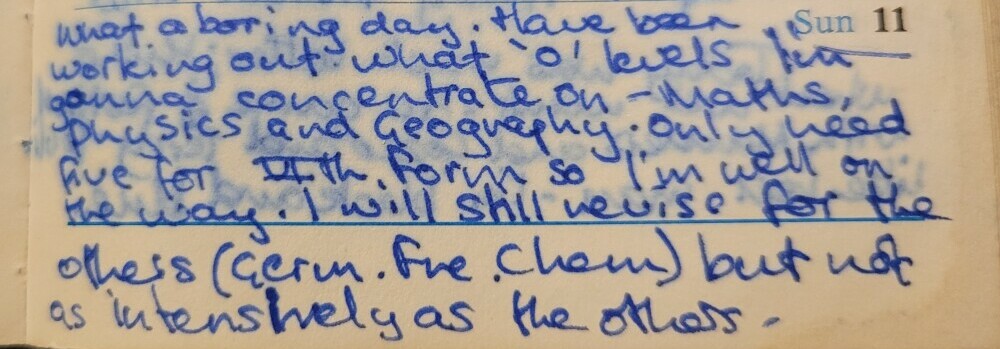 what a boring day. Have been Sun 11
working out what 'O' levels I'm
gonna concentrate on - Maths,
Physics and Geography. Only need
five for VIth Form so I'm well on
the way. I will still revise for the
others (Germ. Fre. Chem) but not
as intensively as the others.